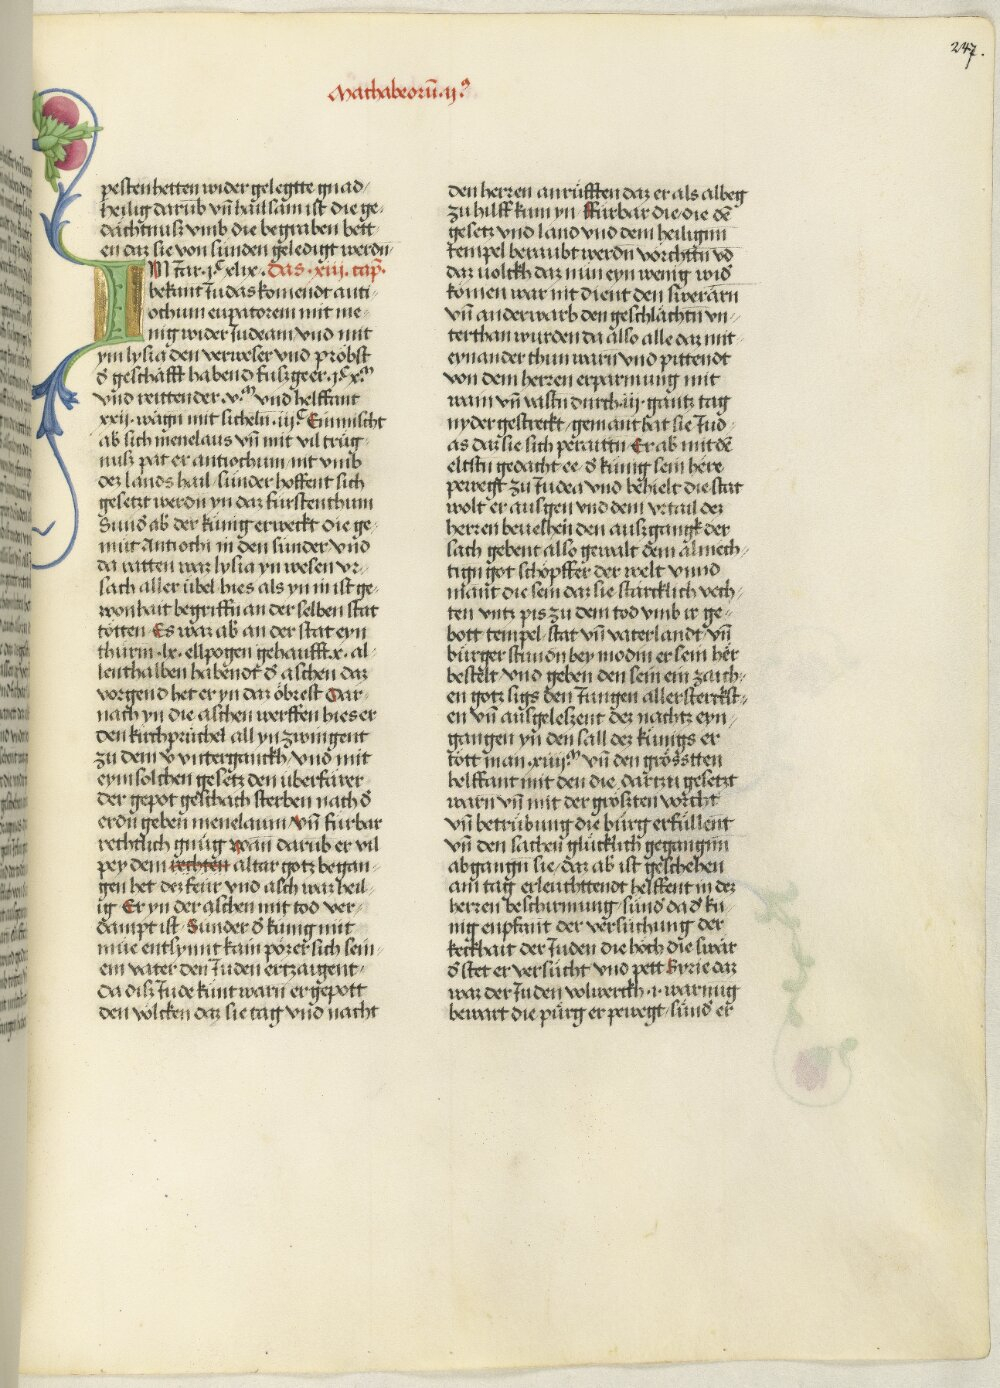 247.
Machabeorū.ij.
pesten hetten wider gelegtte gnad/
heilig darūb vn̄ hailsam ist die ge/
dachtnusz vmb die begraben bett/
en daz sie von sunden geledigt werdn̄
IM iar .jc. xlix. Das .xiij. cap.
bekant Judas komendt anti/
ochum eupatorem mit me/
nig wider Judeam vnd mit
ym lysia den verweser vnd probst
d̄ geschafft habend fuszgeer .jc.xm
vnd reittender .vm. vnd helffant
xxij. wägn mit sicheln .iijc. Einmischt
ab sich menelaus vn̄ mit vil trüg/
nusz pat er antiochum nit vmb
dez lands hail sunder hoffent sich
gesetzt werdn̄ yn daz furstenthum
Sund̄ ab der künig erweckt die ge/
müt Antiochi in den sunder vnd
da ratten waz lysia yn wesen vr/
sach aller übel hies als yn in ist ge/
wonhait begriffn̄ an der selben stat
totten Es waz ab an der stat eyn
thurm .lx. ellpogen gehaufft.x. al/
lenthalben habendt d̄ aschen daz
vorgend het er yn daz öbrest Dar/
nach yn die aschen werffen hies er
den kirchprüchel all yn zwingent
zu dem v̄ntergangkh vnd mit
eym solchen gesetz den überfarer
der gepot geschach sterben nach d̄
erdn̄ geben menelaum vn̄ fürbar
rechtlich gnüg wan darūb er vil
pey dem rechten altar gotz began/
gen het dez feür vnd asch waz heil/
ig Er yn der aschen mit tod ver/
dampt ist Sunder d̄ künig mit
müe entsynnt kam pözer sich sein/
em vater den Juden ertzaigent/
da disz Jude kunt warn er gepott
den völcken daz sie tag vnd nacht
den herren anrüfften daz er als albeg
zu hilff kum yn Fürbar die die dē
gesetz vnd land vnd dem heiligm̄
tempel beraubt werdn̄ vorchttn̄ vd̄
daz uolckh daz nun eyn wenig wid̄
komen waz nit dient den swerärn
vn̄ anderwarb den geschlächtn̄ vn/
terthan wurden da also alle daz mit/
eynander thun warn vnd pittendt
von dem herren erparmung mit
wain vn̄ vastn̄ durch .iij. gantz tag
nyder gestreckt gemant hat sie Jud/
as daz sie sich peraittn̄ Er ab mit dē
eltstn̄ gedacht ee d̄ künig sein here
pewegt zu Judea vnd behielt die stat
wolt er auszgen vnd dem vrtail dez
herren beuelhen den auszgangk der
sach gebent also gewalt dem almech/
tign̄ got schöpffer der welt vnnd
mant die sein daz sie stärcklich vech/
ten vntz pis zu dem tod vmb ir ge/
bott tempel stat vn̄ vaterlandt vn̄
bürger staudn̄ bey modin er sein hër
bestelt vnd geben den sein ein zaich/
en gotz sigs den Jungen aller sterckst/
en vn̄ auszgeleszent dez nachtz eyn/
gangen yn̄ den sall dez künigs er
tott man .xiiijm. vn̄ den grösstten
helffant mit den die dartzu gesetzt
warn vn̄ mit der grösten vorcht
vn̄ betrübung die bürg erfüllent
vn̄ den sachen glücklich gegangnn̄
abgangn̄ sie daz ab ist geschehen
am tag erleuchttendt helffent in dez
herren beschirmung sund̄ da d̄ kü/
nig enpfant der versüchung der
keckhait der Juden die höch die swär
d̄ stet er versücht vnd pett Syrie daz
waz der Juden volwerckh .i. warnug
bewart die pürg er pewegt sund̄ er